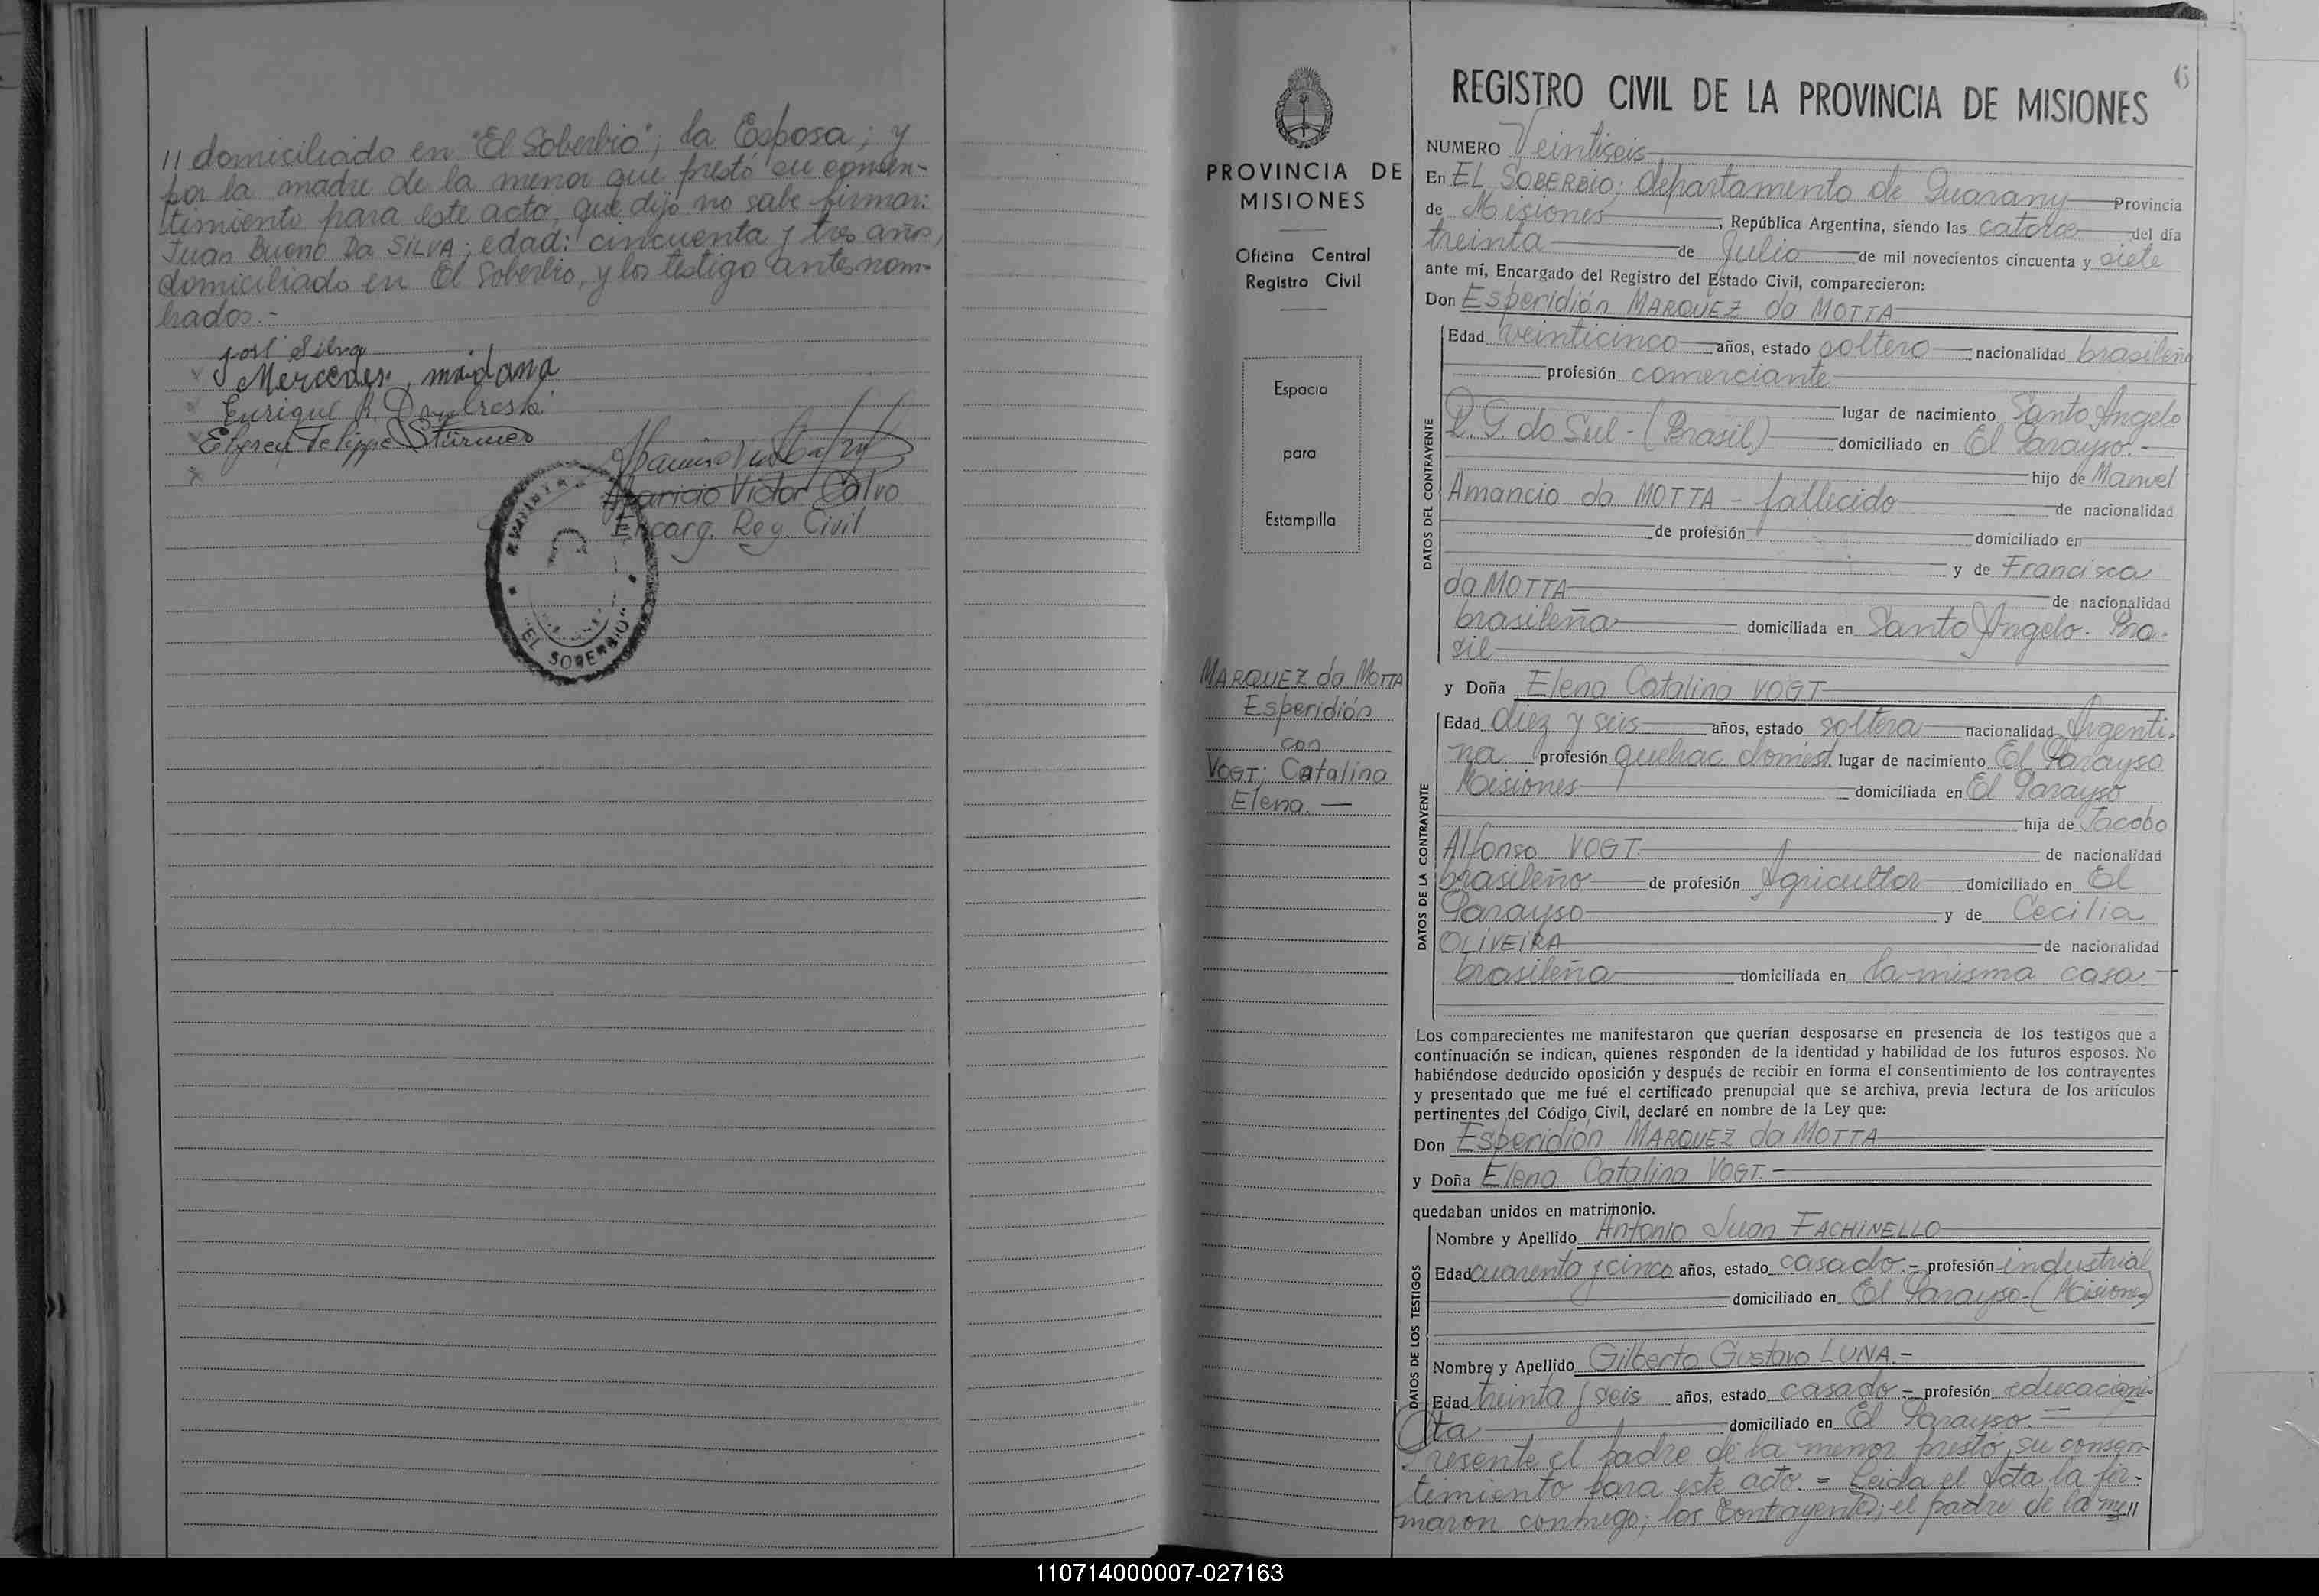 // domiciliado en "El Soberbio"; la Esposa; y
por la madre de la menor que prestó su consen-
timiento para este acto, que dijo no sabe firmar:
Juan Bueno Da SILVA; edad: cincuenta y tres años,
domiciliado en El Soberbio, y los testigo antes nom-
brados.-
José Silva
Mercedes. midana
Enrique R.
Elyseu Felippe Stürmer
Aparicio Victor Calvo
Encarg. Reg. Civil
"EL SOBERBIO"
PROVINCIA DE
MISIONES
Oficina Central
Registro Civil
Espacio
para
Estampilla
MARQUEZ da MOTTA
Esperidión
con
VOGT; Catalina
Elena. —
6
REGISTRO CIVIL DE LA PROVINCIA DE MISIONES
NUMERO Veintiseis
En EL SOBERBIO; departamento de Guarany Provincia
de Misiones, República Argentina, siendo las catorce del día
treinta de Julio de mil novecientos cincuenta y siete
ante mí, Encargado del Registro del Estado Civil, comparecieron:
Don Esperidión MARQUEZ da MOTTA
DATOS DEL CONTRAYENTE
Edad veinticinco años, estado soltero nacionalidad brasileño
profesión comerciante
lugar de nacimiento Santo Angelo
R.G. do Sul - (Brasil) domiciliado en El Parayso.-
hijo de Manuel
Amancio da MOTTA - fallecido de nacionalidad
de profesión domiciliado en
y de Francisca
da MOTTA de nacionalidad
brasileña domiciliada en Santo Angelo. Bra-
sil
y Doña Elena Catalina VOGT
DATOS DE LA CONTRAYENTE
Edad diez y seis años, estado soltera nacionalidad Argenti-
na profesión quehac domést. lugar de nacimiento El Parayso
Misiones domiciliada en El Parayso
hija de Jacobo
Alfonso VOGT. de nacionalidad
brasileño de profesión Agricultor domiciliado en El
Parayso y de Cecilia
OLIVEIRA de nacionalidad
brasileña domiciliada en la misma casa.-
Los comparecientes me manifestaron que querían desposarse en presencia de los testigos que a
continuación se indican, quienes responden de la identidad y habilidad de los futuros esposos. No
habiéndose deducido oposición y después de recibir en forma el consentimiento de los contrayentes
y presentado que me fué el certificado prenupcial que se archiva, previa lectura de los artículos
pertinentes del Código Civil, declaré en nombre de la Ley que:
Don Esperidión MARQUEZ da MOTTA
y Doña Elena Catalina VOGT.-
quedaban unidos en matrimonio.
DATOS DE LOS TESTIGOS
Nombre y Apellido Antonio Juan FACHINELLO
Edad cuarenta y cinco años, estado casado - profesión industrial
domiciliado en El Parayso-(Misiones)
Nombre y Apellido Gilberto Gustavo LUNA.-
Edad treinta y seis años, estado casado - profesión educacioni-
sta domiciliado en El Parayso. =
Presente el padre de la menor prestó su consen-
timiento para este acto. = Leida el Acta la fir-
maron conmigo; los Contrayentes; el padre de la me//
110714000007-027163